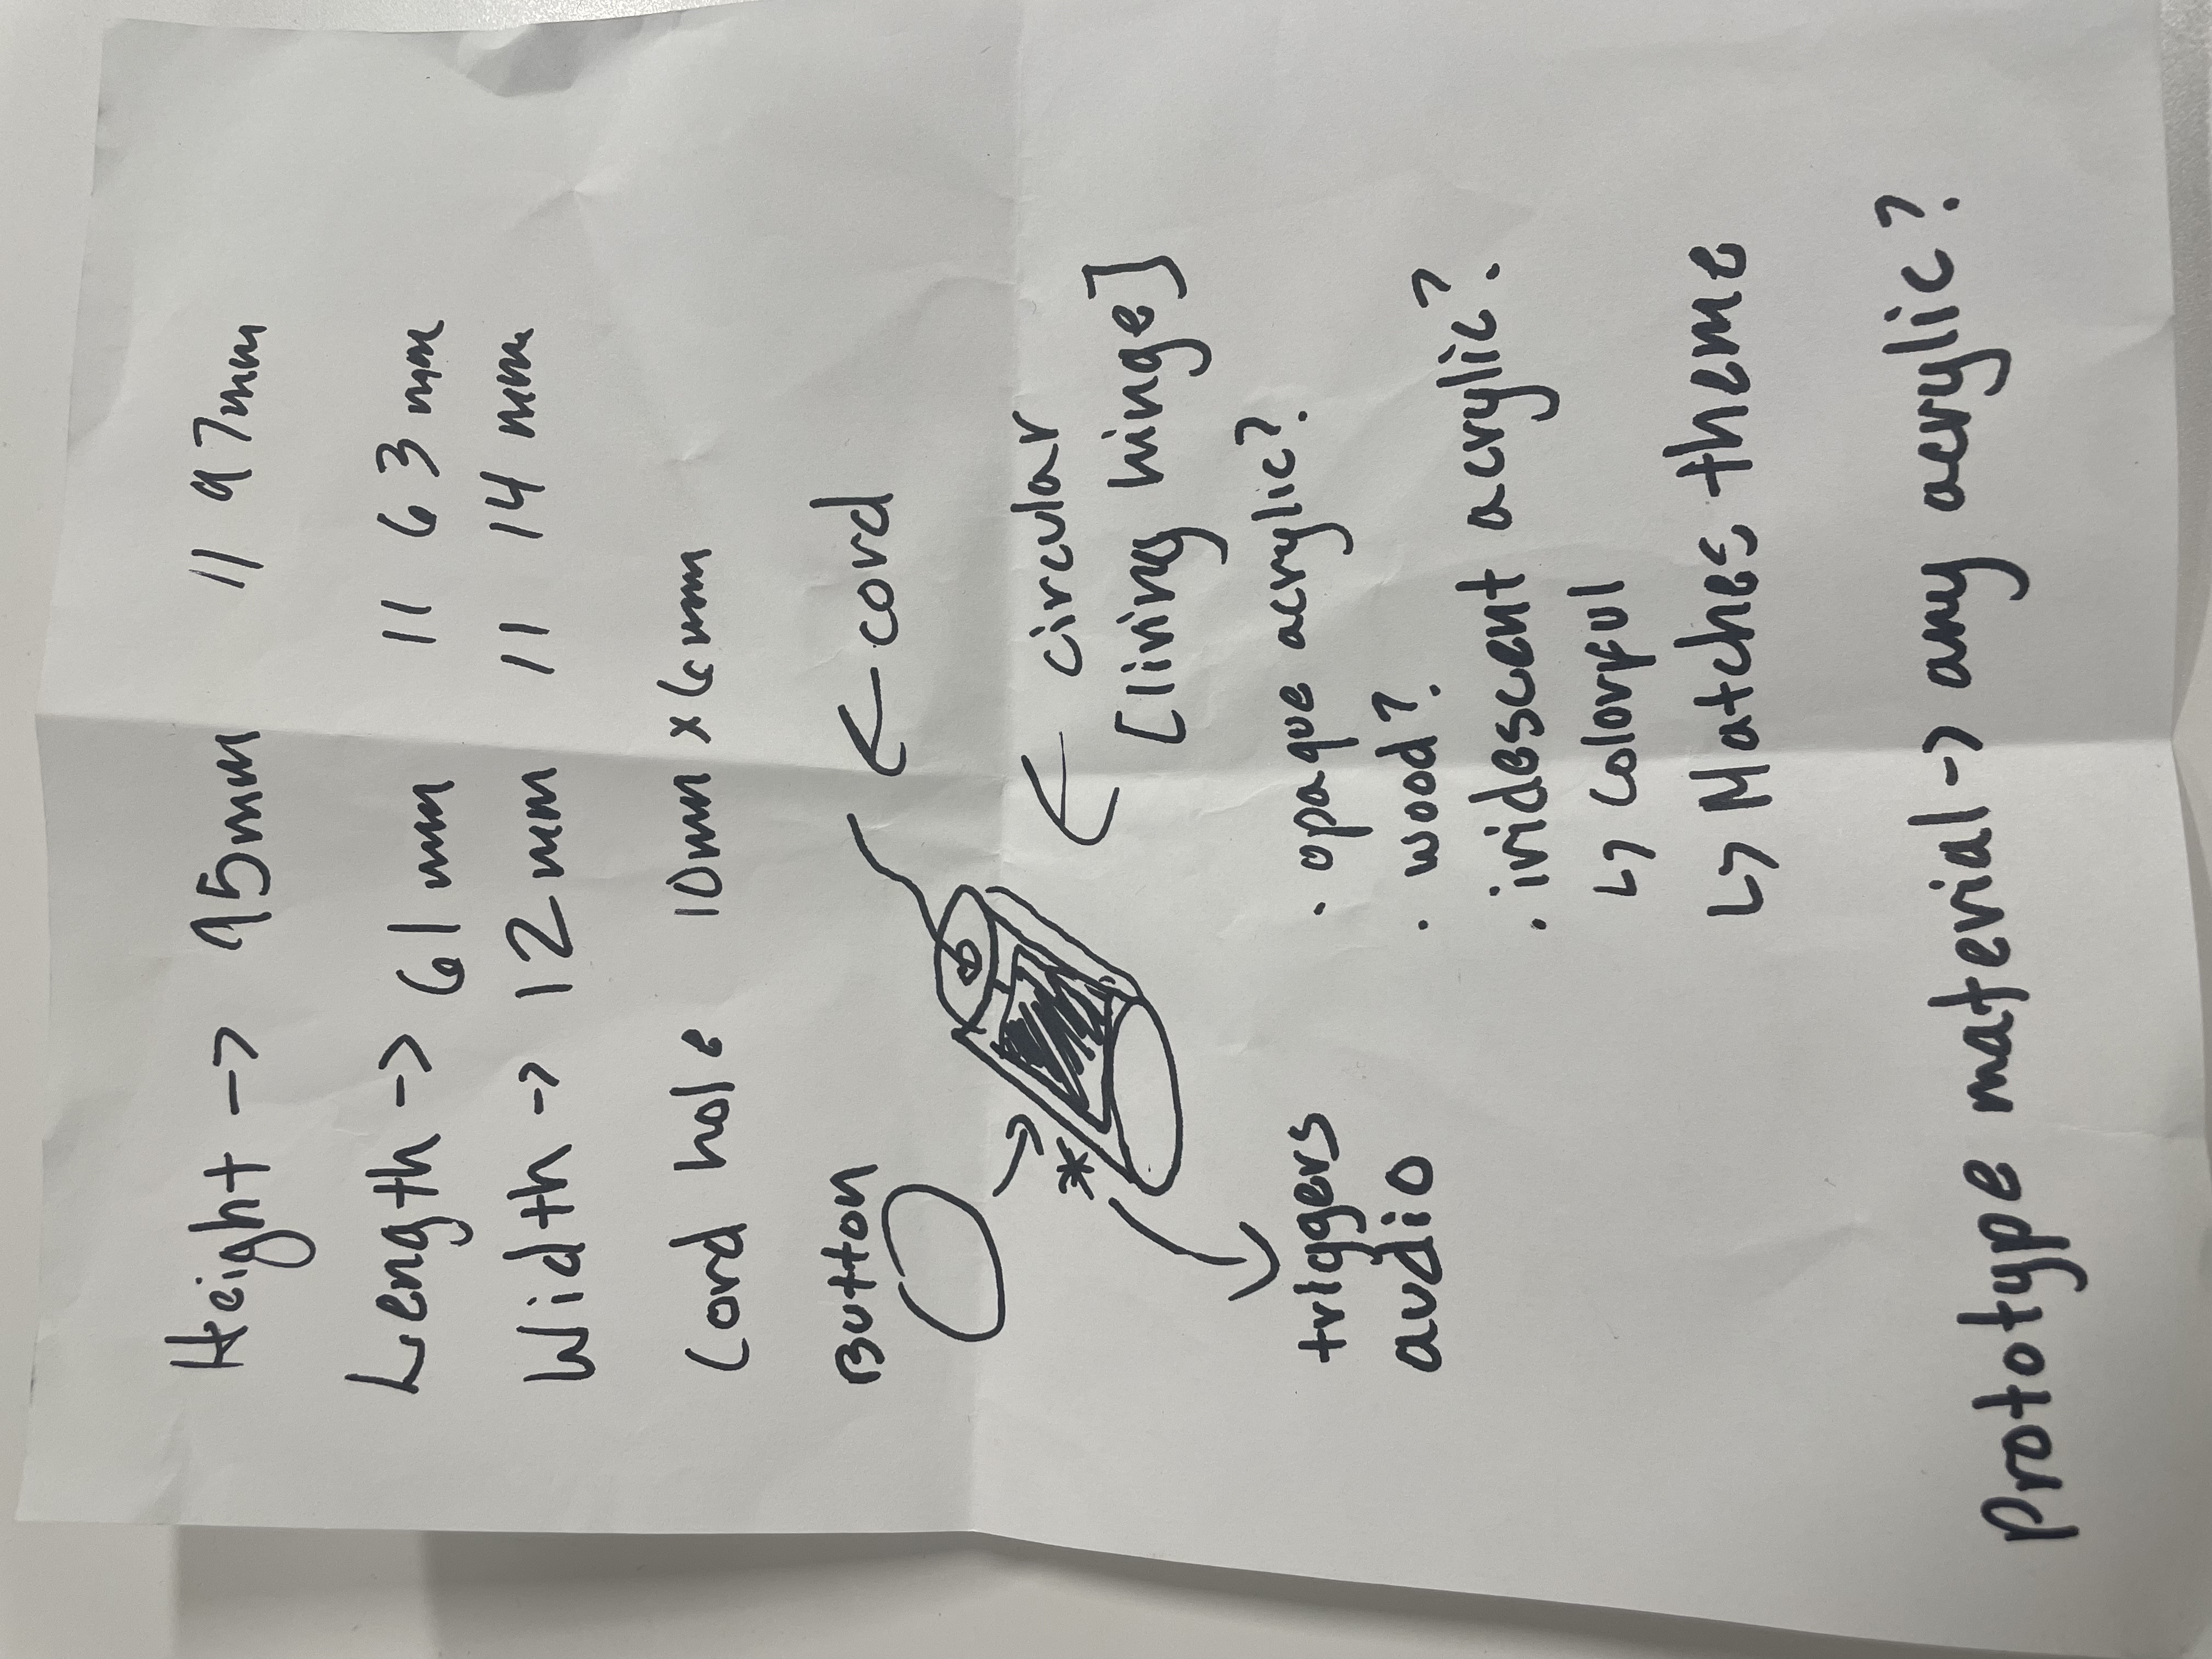 Height -> 95mm || 97mm
Length -> 61mm || 63mm
Width -> 12mm || 14mm
Cord hole 10mm x 6mm
Button
<- cord
<- circular
[living hinge]
*
triggers
audio
· opaque acrylic?
· wood?
· iridescent acrylic?
↳ Colorful
↳ Matches theme
Prototype material -> any acrylic?